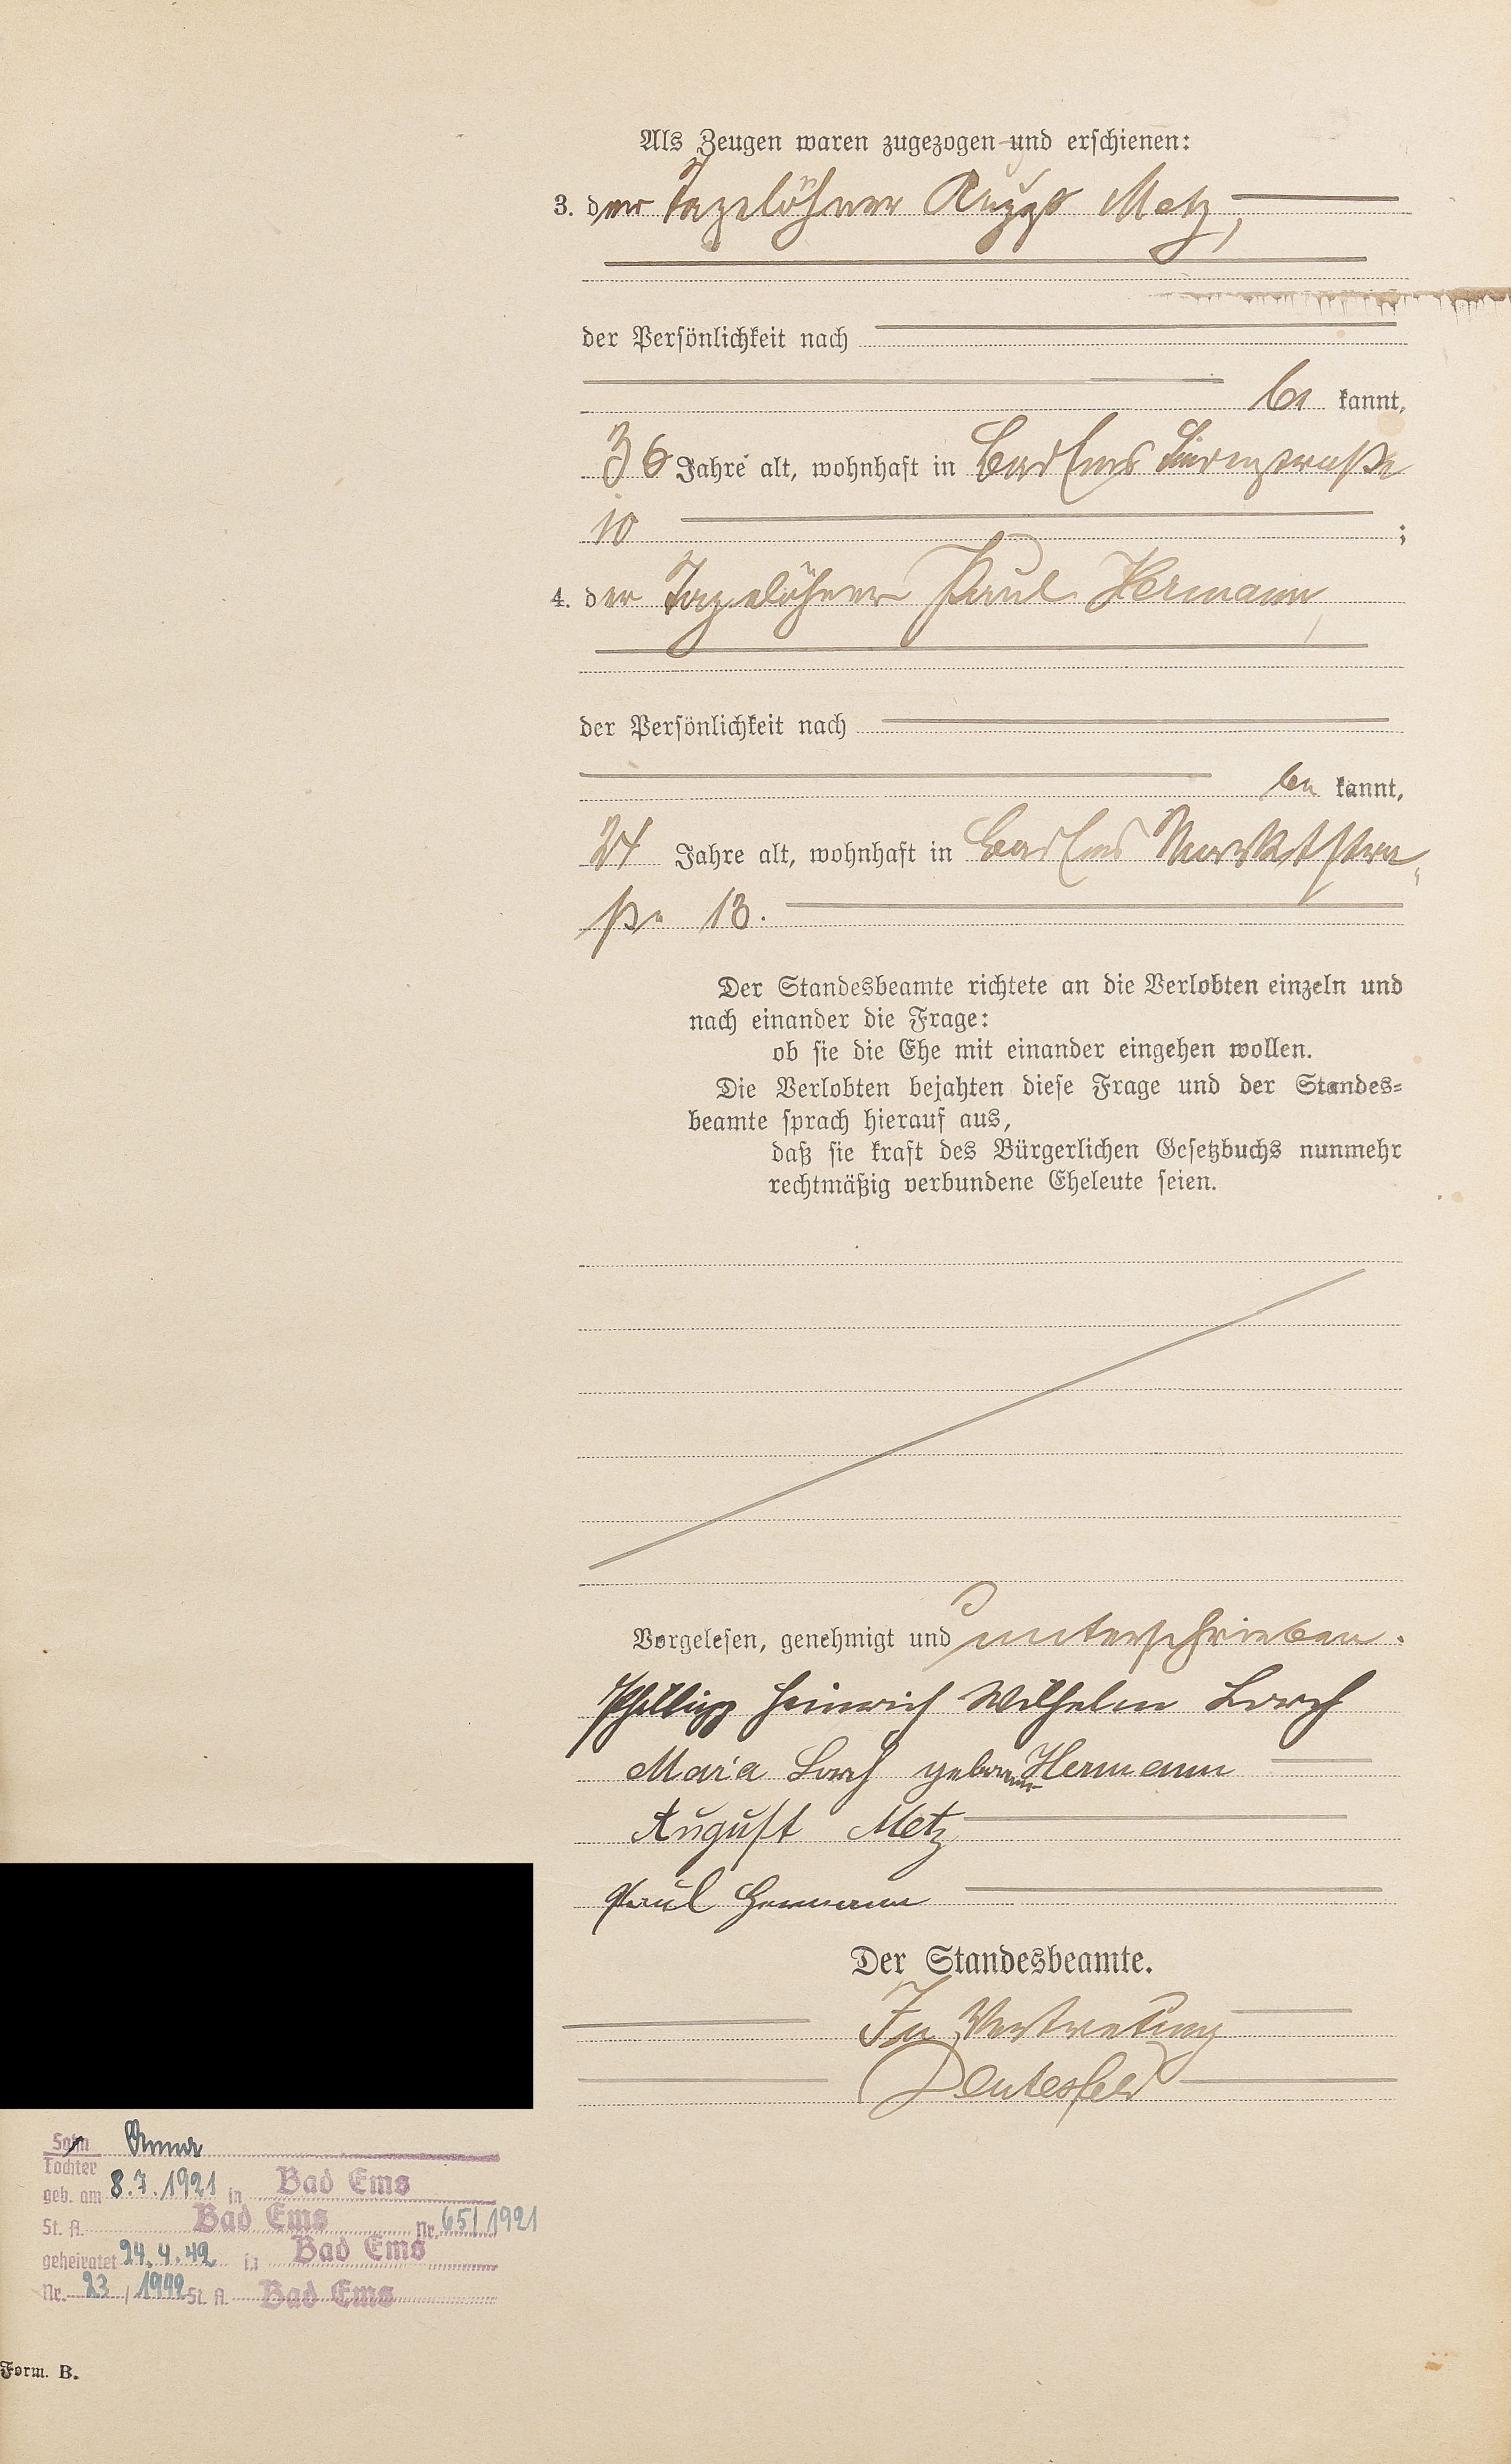 Als Zeugen waren zugezogen und erschienen:
3. der Tagelöhner August Metz,
der Persönlichkeit nach
be kannt,
36 Jahre alt, wohnhaft in Bad Ems
10 ;
4. der Tagelöhner Paul Hermann,
der Persönlichkeit nach
be kannt,
24 Jahre alt, wohnhaft in Bad Ems Marktstra-
ße 13.
Der Standesbeamte richtete an die Verlobten einzeln und
nach einander die Frage:
ob sie die Ehe mit einander eingehen wollen.
Die Verlobten bejahten diese Frage und der Standes-
beamte sprach hierauf aus,
daß sie kraft des Bürgerlichen Gesetzbuchs nunmehr
rechtmäßig verbundene Eheleute seien.
Vorgelesen, genehmigt und unterschrieben.
Phillipp Heinrich Wilhelm Lorch
Maria Lorch geborene Hermann
August Metz
Paul Hermann
Der Standesbeamte.
In Vertretung
Sohn Anna
Tochter
geb. am 8.7.1921 in Bad Ems
St. A. Bad Ems Nr. 65/1921
geheiratet 24.4.42 in Bad Ems
Nr. 23 / 1942 St. A. Bad Ems
Form. B.